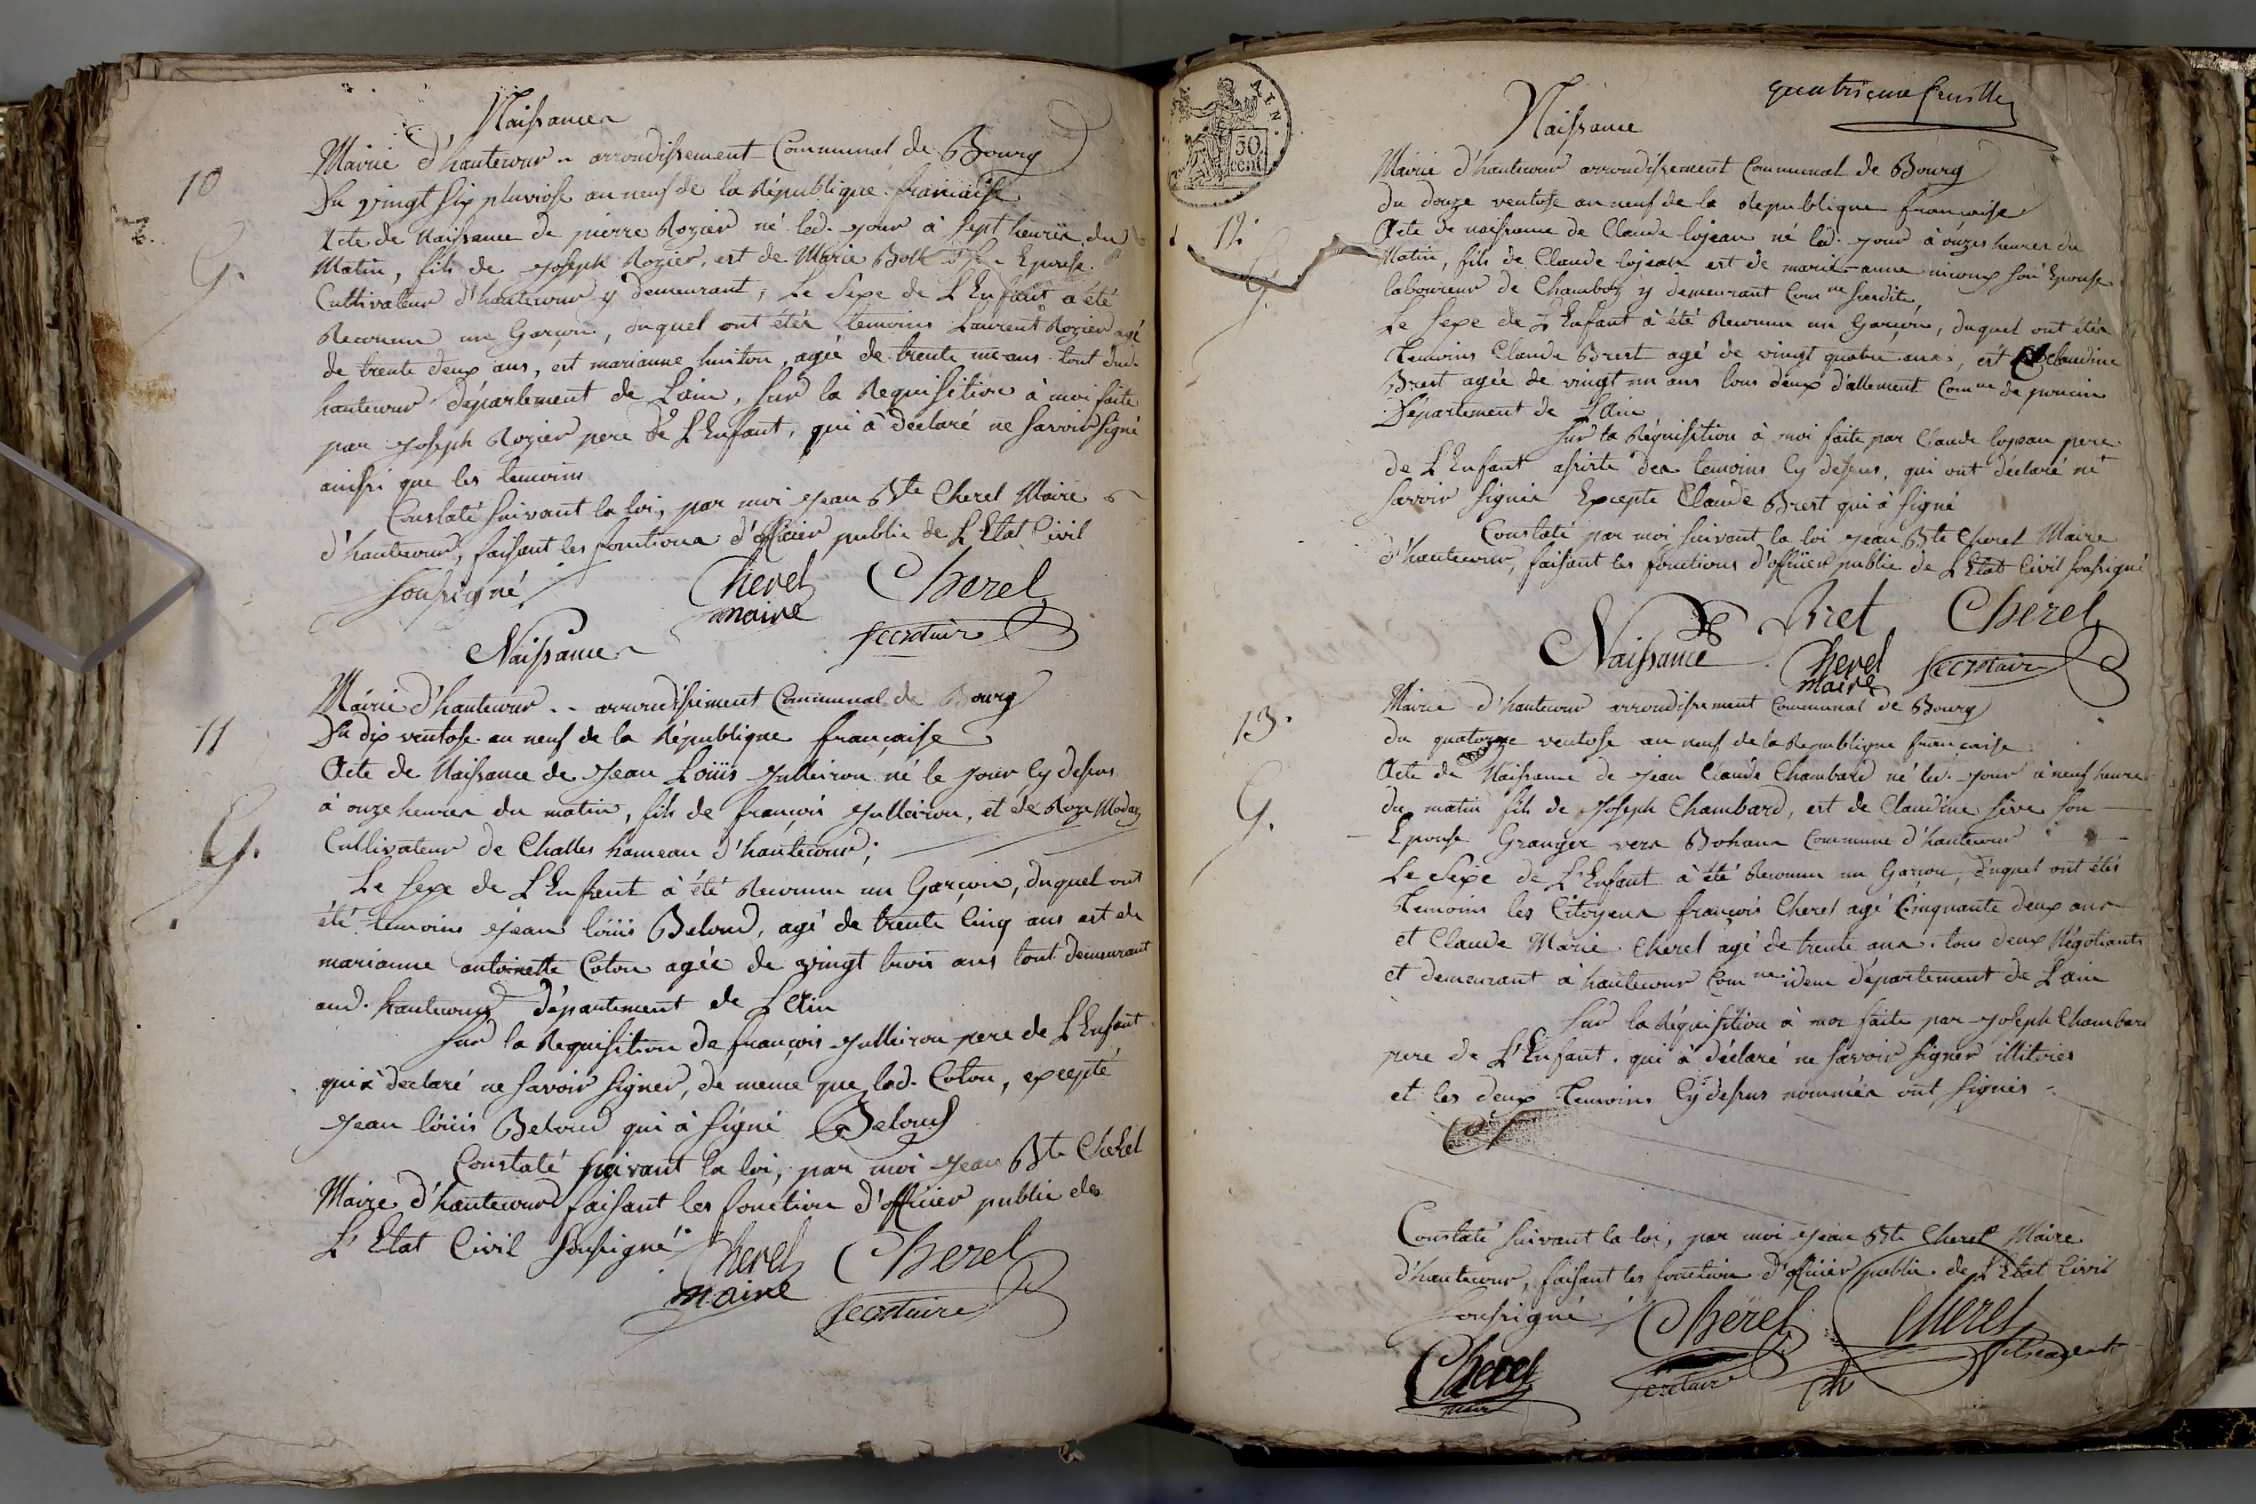 Naissance
10
Mairie d'hautecour arrondissement Communal de Bourg
Du vingt six pluviose an neuf de la République francaise
Acte de Naissance de pierre Rozier né led. jour à sept heures du
Matin, fils de Joseph Rozier, est de Marie son Epouse
Cultivateur d'hautecour y demeurant, Le Sexe de L'Enfant à été
Reconnu un Garcon, duquel ont étés temoins Laurent Rozier agé
de trente deux ans, est marianne huiton, agée de trente un ans tout dud.
hautecour département de Lain, sur la Requisition à moi faite
par Joseph Rozier pere de L'Enfant, qui à declaré ne savoir signé
ainssi que les temoins
Constaté suivant la loi, par moi Jean Bte Cherel Maire
d'hautecour, faisant les fonctions d'officier public de L'Etat Civil
soussigné
Cherel Cherel
maire secretaire
Naissance
11
Mairie d'hautecour arrondissement Communal de Bourg
Du dix ventose an neuf de la République française
Acte de Naissance de Jean Loüis Julleiron né le jour cy dessus
à onze heures du matin, fils de françois Julleiron, et de Roze Modas
Cultivateur de Challes hameau d'hautecour;
G.
Le sexe de L'Enfant à été Reconnu un Garçon, duquel ont
été temoins Jean loüis Beloud, agé de trente Cinq ans est de
marianne antoinette Coton agée de vingt trois ans tout demeurant
aud. hautecour département de L'Ain
Sur la Requisition de françois Julleiron pere de L'Enfant
qui à declaré ne savoir signer, de meme que lad. Coton, excepté
Jean loüis Beloud qui à signé Beloud
Constaté suivant la loi, par moi Jean Bte Cherel
Maire d'hautecour faisant les fonction d'officier public de
L'Etat Civil soussigné
Cherel Cherel
maire secretaire
quatrieme feuille
AIN.
50
cent
Naissance
Mairie d'hautecour arrondissement Communal de Bourg
du douze ventose an neuf de la République francaise
12.
Acte de naissance de Claude lojean né led. jour à onzes heures du
Matin, fils de Claude lojean est de marie-anne nioux son Epouse
laboureur de Chambod y demeurant Comne susdite,
Le sexe de L'Enfant à été Reconnu un Garçon, duquel ont étés
Temoins Claude Brest agé de vingt quatre ans, est Claudine
Brest agée de vingt un ans tous deux d'allement Comne de poncin
Département de L'Ain
Sur la Réquisition à moi faite par Claude lojean pere
de L'Enfant assisté des temoins cy dessus, qui ont déclaré ne
savoir signer Excepte Claude Brest qui à signé
Constaté par moi suivant la loi Jean Bte Cherel Maire
d'hautecour, faisant les fonctions d'officier public de L'Etat Civil soussigné
Bret Cherel
Naissance Cherel secretaire
maire
13.
Mairie d'hautecour arrondissement Communal de Bourg
du quatorze ventose an neuf de la Republique française
Acte de Naissance de Jean Claude Chambard né led. jour à neuf heures
G.
du matin fils de Joseph Chambard, est de Claudine sève son
Epouse Granger vers Bohan Commune d'hautecour
Le Sexe de L'Enfant à été Reconnu un Garcon, duquel ont étés
Temoins les Citoyens françois Cherel agé Cinquante deux ans
et Claude Marie Cherel agé de trente ans, tous deux Négotiants
et demeurant à hautecour Comne idem département de Lain
Sur la Réquisition à moi faite par Joseph Chambard
pere de L'Enfant, qui à déclaré ne savoir signer
et les deux Temoins cy dessus nommés ont signés
Constaté suivant la loi, par moi Jean Bte Cherel Maire
d'hautecour, faisant les fonction d'officier public de L'Etat Civil
soussigné Cherel Cherel
Cherel secretaire
maire